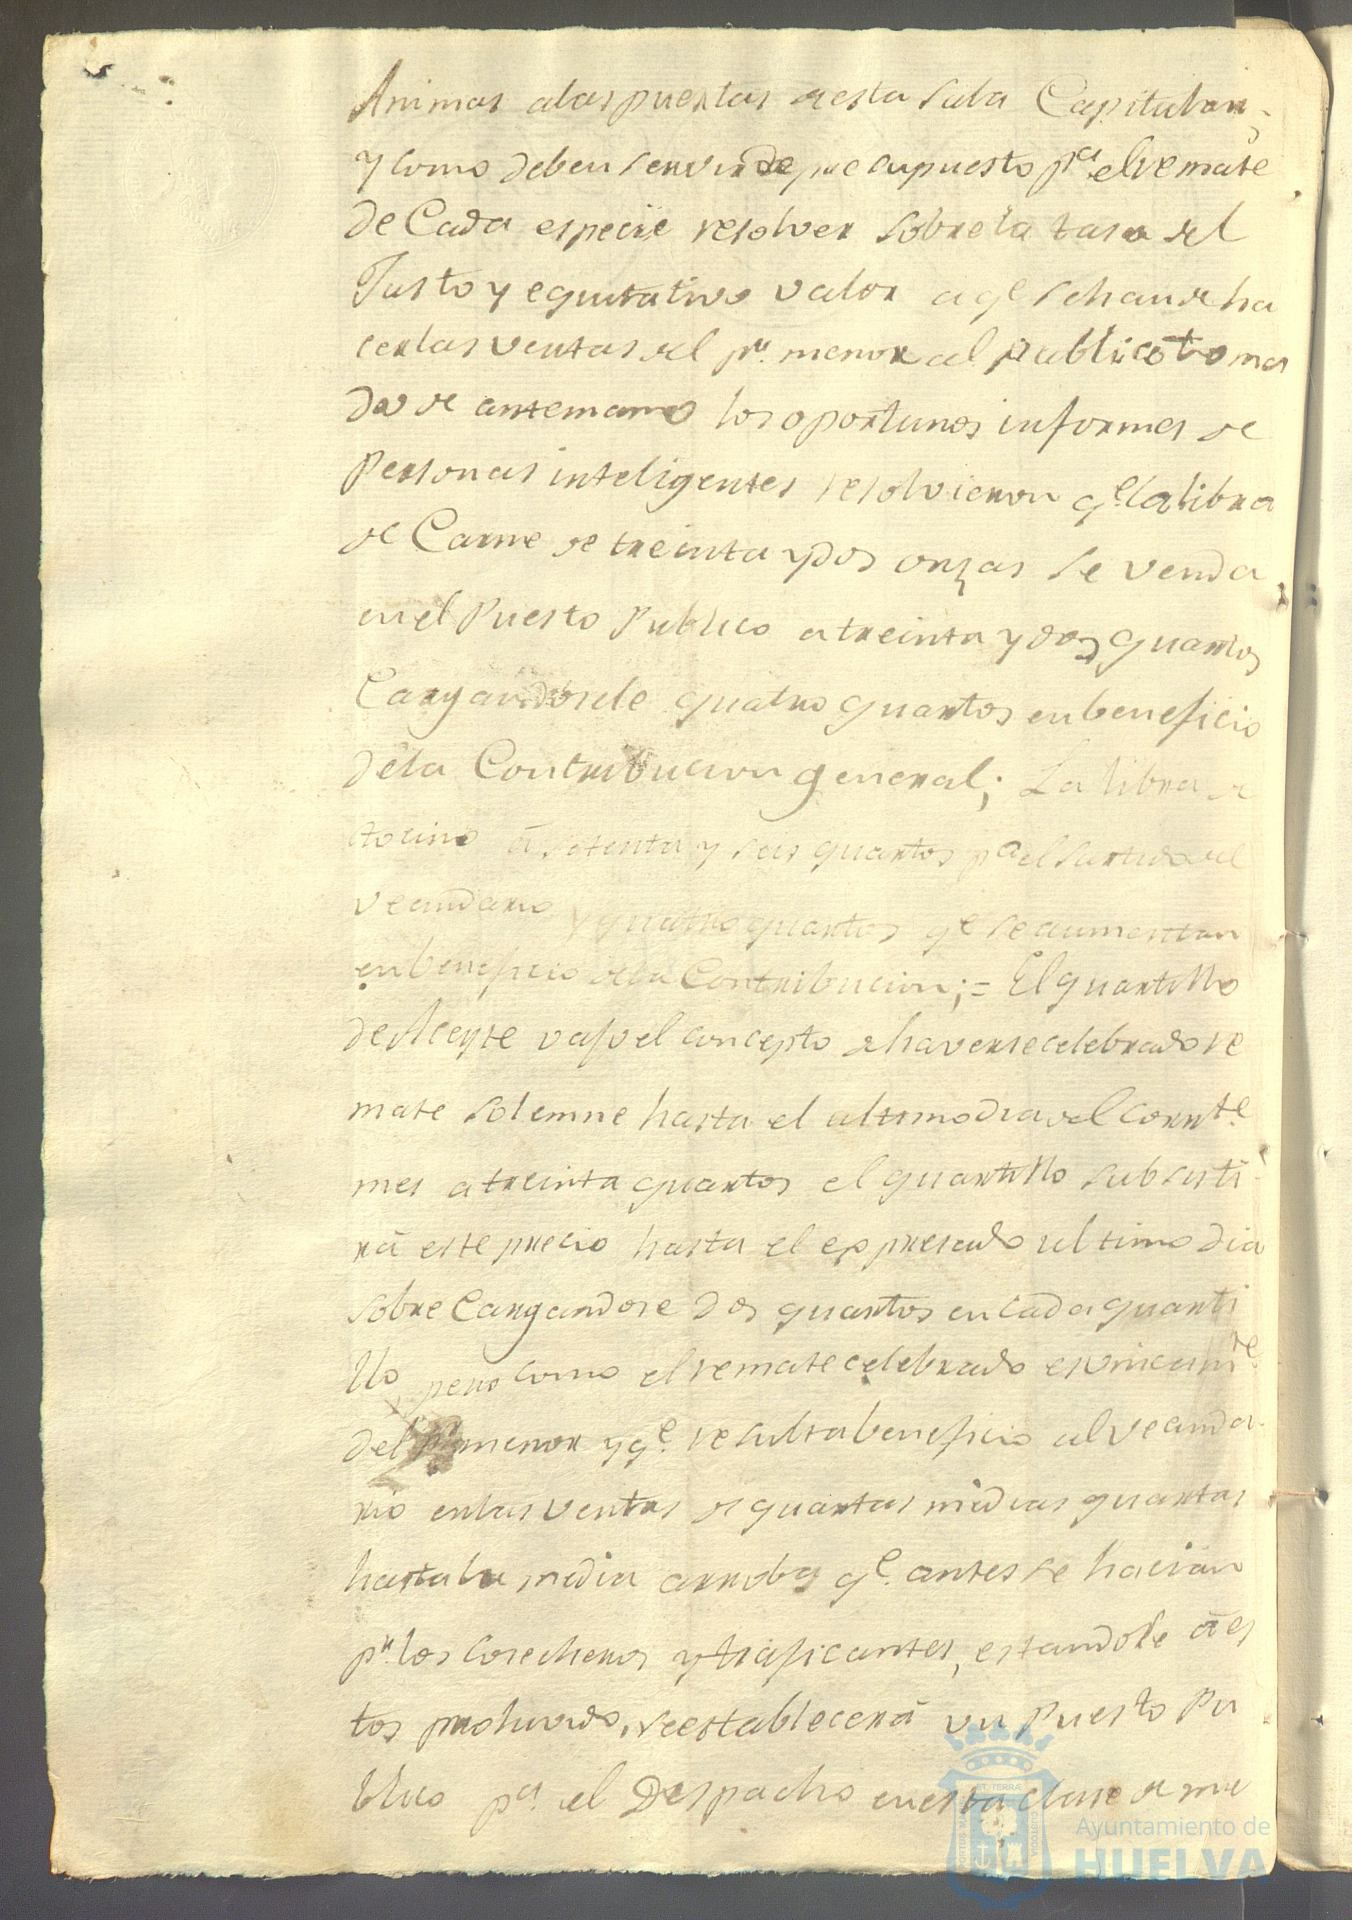 Animas a las puertas de esta Sala Capitular,
y como deben servir de presupuesto pª el remate
de Cada especie resolver sobre la tasa del
Justo y equitativo valor a qe se han de ha
cer las ventas del pr. menor al publico toma
das de antemano los oportunos informes de
Personas inteligentes resolvieron qe la libra
de Carne de treinta y dos onzas se venda
en el Puesto Publico a treinta y dos quartos
Cargandosele quatro quartos en beneficio
de la Contribucion general; La libra de
tocino à setenta y seis quartos pª el surtido del
vecindario y quatro quartos qe se aumentan
en beneficio de la Contribucion;= El quartillo
de Aceyte vajo el concepto de haverse celebrado re
mate solemne hasta el ultimo dia del corrte.
mes a treinta quartos el quartillo subsisti
rà este precio hasta el expresado ultimo dia
sobre Cargandose dos quartos en cada quarti
llo, pero como el remate celebrado es unicamte.
del Pr menor y qe. resulta beneficio al vecinda
rio en las ventas de quartas medias quartas
hasta la media arroba qe. antes se hacian
pr. los Cosecheros y traficantes, estandole à es
tos prohivido, se establecerà un Puesto Pu
blico pª. el Despacho en esta clase de me
ET TERRÆ
Ayuntamiento de
HUELVA